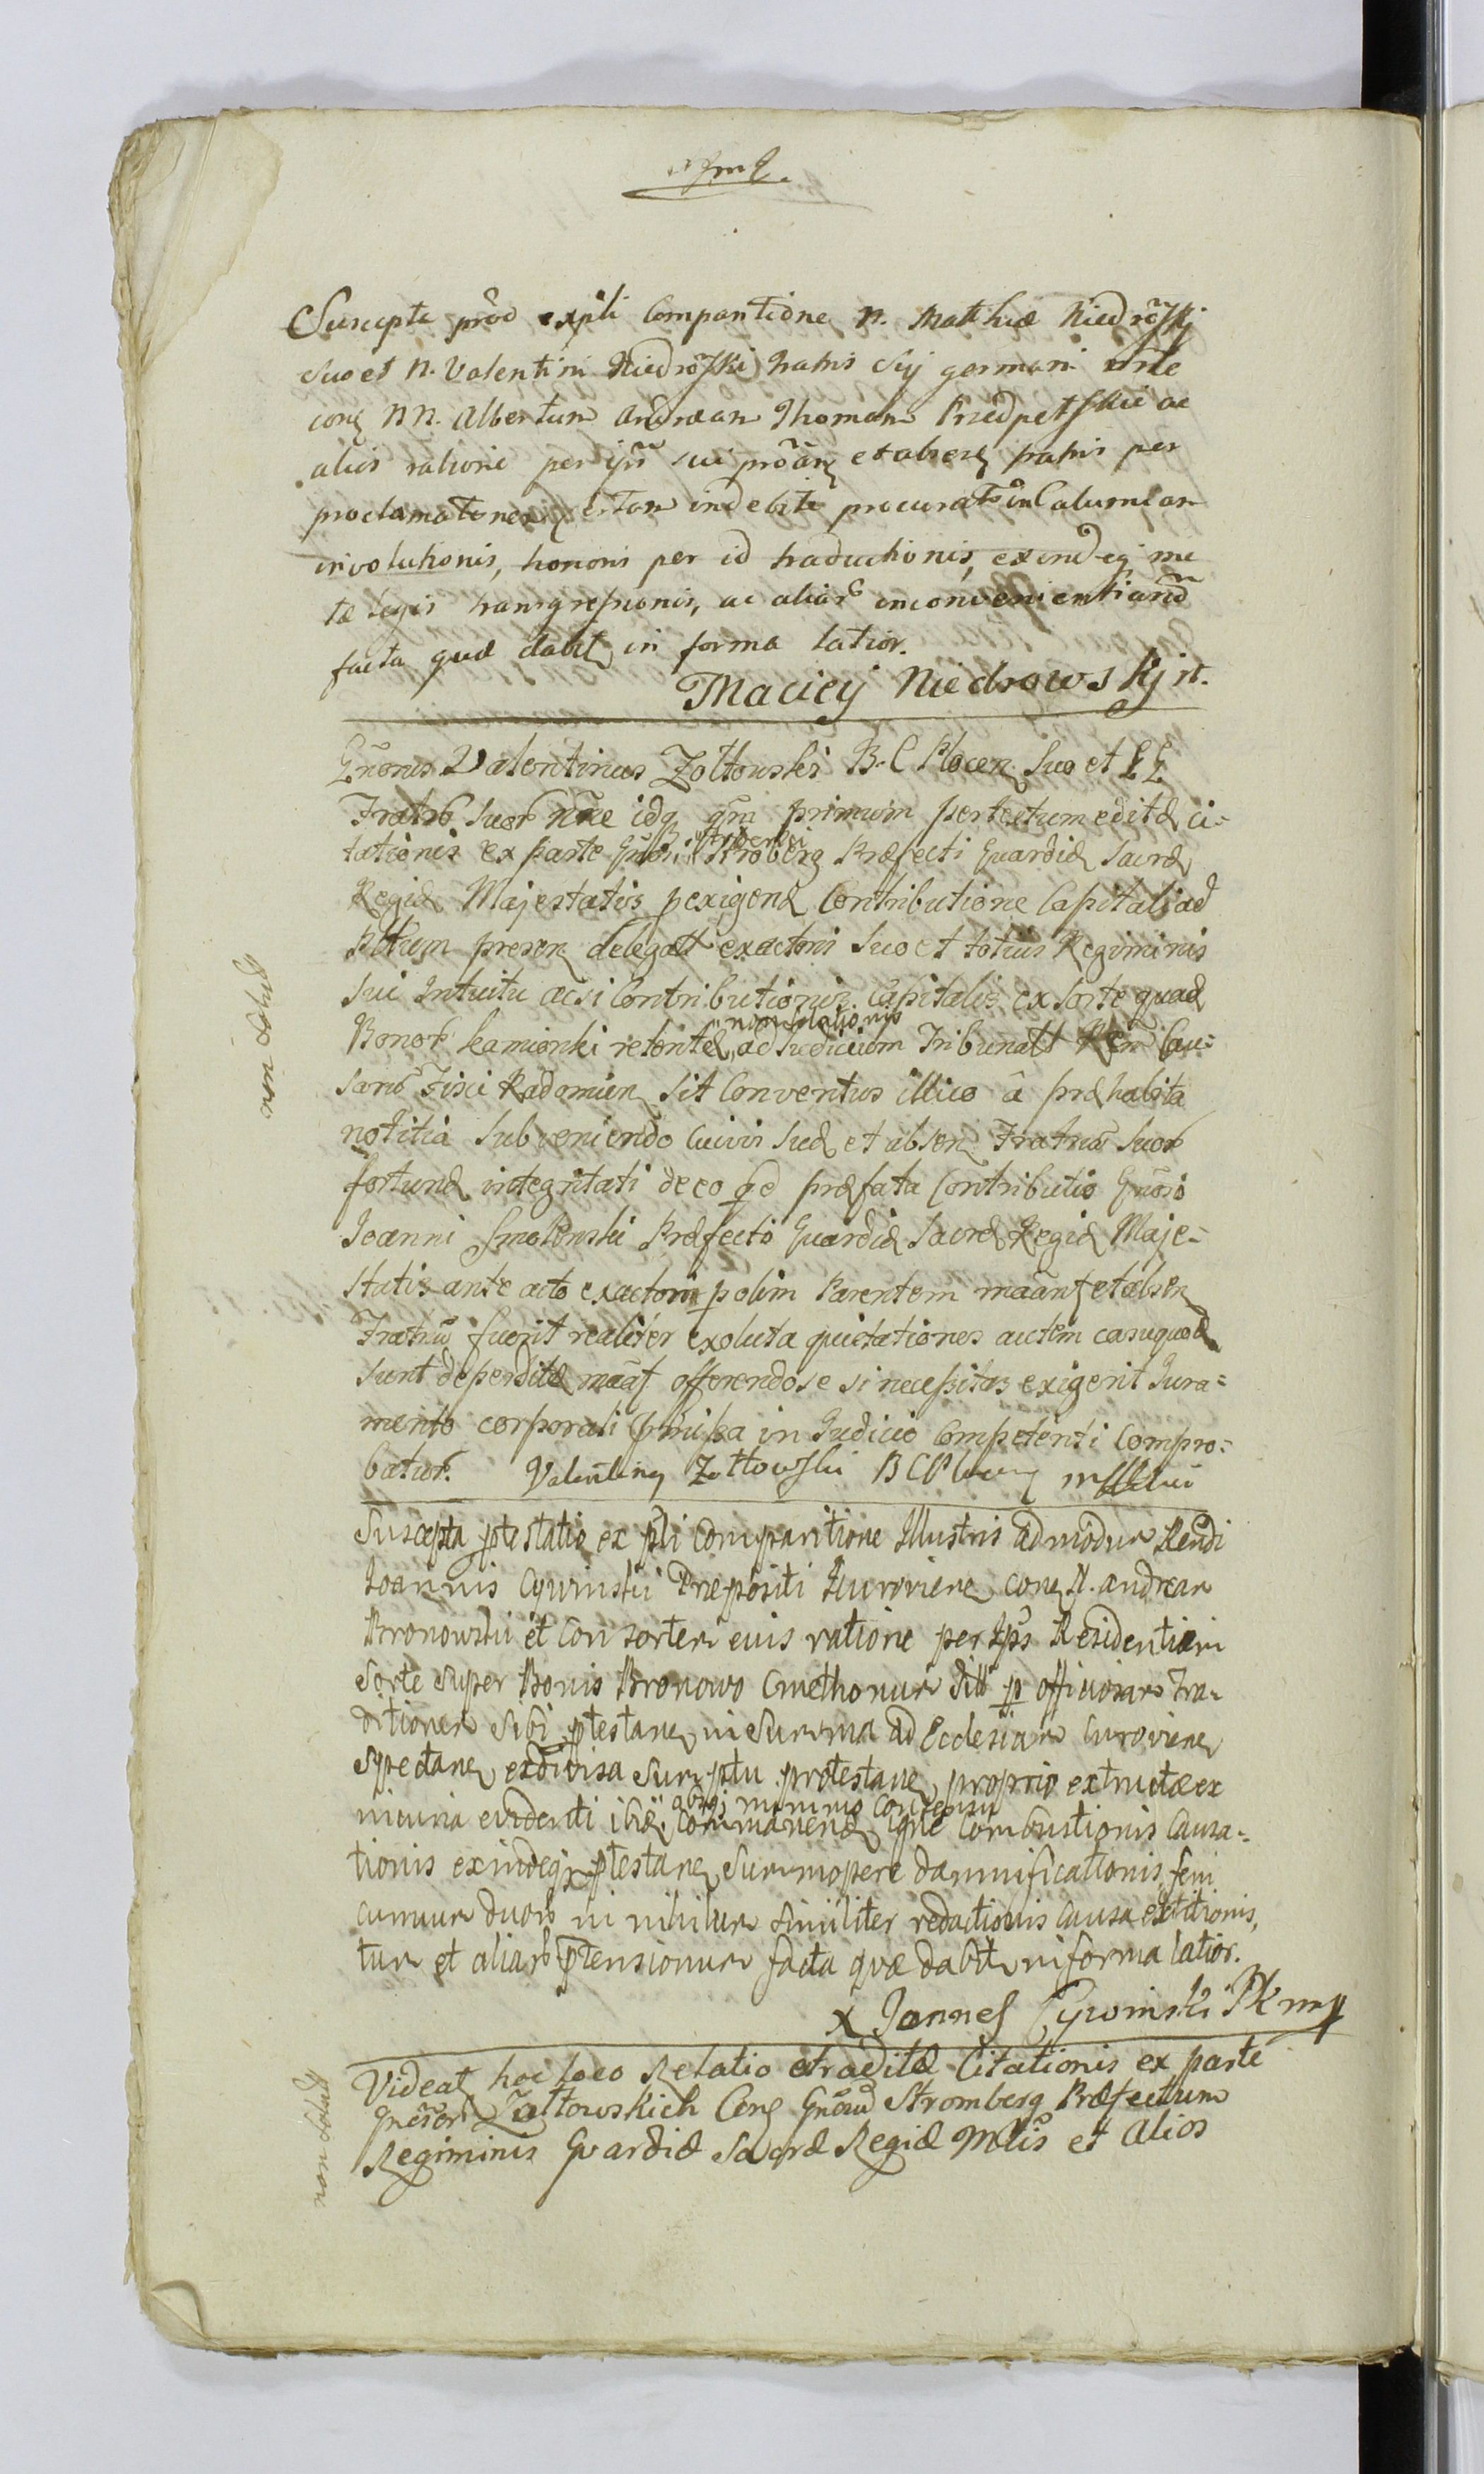 Suscepta prod expli Compantione N. Mathiæ Niedrosskj
suo et N. Valentini Niedrosski fratris sŭj germani nñe
con N N. Albertum Andream Thomam Przedpetskie ac
alios ratione per ipm sui proan et absen fratris per
proclamationem indebite procurat in Calumniam
involutionis, honoris per id traductionis, exindeq me
tæ legis transgressionis, ac aliar inconvenientiarum
facta quæ dabit in forma latior.
Maciey Niedrowskj
Gnorus Valentinus Zołtowski B. C. Plocen suo et GG
Fratrb suorb nñe idq qm primum pertectum editæ ci-
tationis ex parte Gnosi Stroberg Præfecti Guardiæ Sacræ
Regiæ Majestatis p exigenæ Contributione Capitali ad
Pltum presen delegatt exactoris suo et totius Regiminis
sui Intuitu acsi Contributionis Capitalis ex sorte quad
non solutionis
Bonorb Kamionki retentæ, ad Judicium Tribunatt Rgni Cau-
sarub Fisci Radomien sit Conventus illico â præhabita
notitia subveniendo cuivis suæ et absen Fratrub suorb
fortunæ integritati de eo qd præfata Contributio Gnoso
Joanni Smolenski Præfecto Guardiæ Sacræ Regiæ Maje-
statis ante acto exactori p olim Parentem maang et absen
Fratrub fuerit realiter exoluta quietationes autem casuquod
sunt deperditæ maag offerendo se si necessitas exigerit Jura-
mento corporali pmissa in Judicio Competenti Compro-
batur. Valentiny Zołtowski B C P
Suscepta ptestatio ex pli Comparitione Illustris admodum Rendi
Joannis Cywinski Præpositi Zuroviene con N. Andream
Bronowski et Consortem eius ratione per Ips Residentiam
sorte super Bonis Bronowo Cmethonum sitt p officiosam Tra-
ditionem sibi ptestan in summa ad Ecclesiam Curoviene
spectane exdivisa sumptu protestane, proprio extructæ ex
absq minimo consensu
incuria evidenti ibid Commanend igne Combustionis Causa-
tionis exindeq ptestane summopere damnificationis feni
cumum duorb in nihilum similiter redactionis Causa extitionis,
tum et aliarb ptensionum facta quæ dabit in forma latior.
X Joannes Cywinski PK mp
Videat hoc loco Relatio etraditæ Citationis ex parte
Gnosor Zołtowskich Con Gnosum Stromberg Præfectum
Regiminis Gvardiæ Sacræ Regiæ Mttis et Alios
non solvit
non solvit